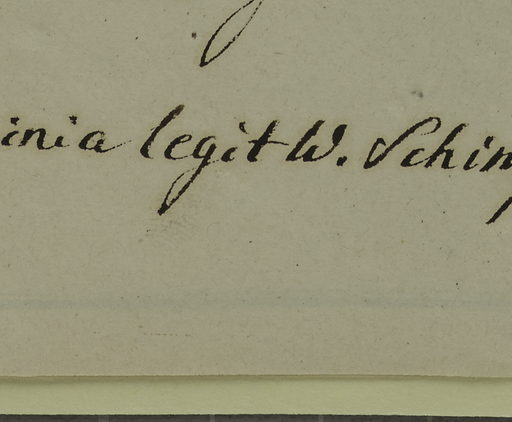 inia legit W. Schim